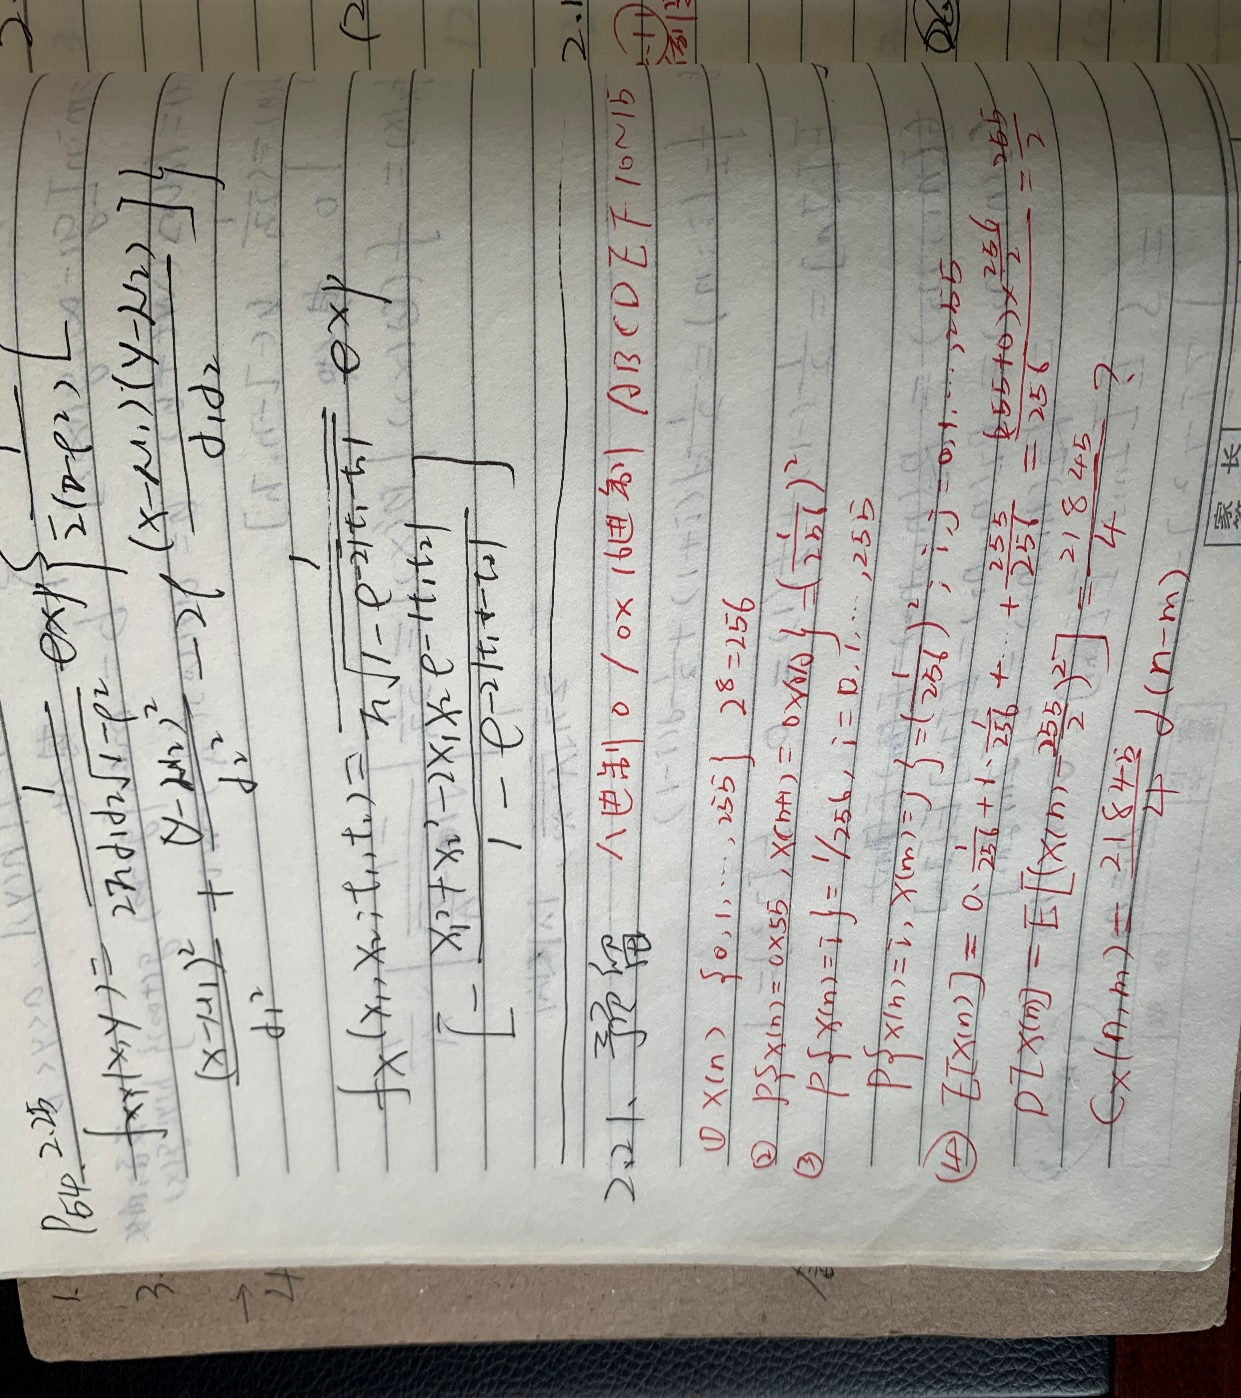 P54 2.25
fXY(x,y) = 1/(2πd1d2√1-ρ²) exp{ 1/2(1-ρ²) [
(x-μ1)²/d1² + (y-μ2)²/d2² - 2ρ (x-μ1)(y-μ2)/d1d2 ]}
fX(x1,x2;t1,t2) = 1/(π√1-e^-2|t1-t2|) exp
[- x1²+x2²-2x1x2e^-|t1-t2| / 1-e^-2|t1-t2| ]
2.21、 预留 八进制 0 / 0x 16进制 ABCDEF 10~15
① X(n) {0,1,...,255} 2^8=256
② P{X(n)=0x55, X(n+1)=0x00} = (1/256)²
③ P{X(n)=i} = 1/256, i=0,1,...,255
P{X(n)=i, X(m)=j} = (1/256)², i,j=0,1,...,255
④ E[X(n)] = 0·1/256 + 1·1/256 + ... + 255/256 = (255+0)×256/2 / 256 = 255/2
D[X(n)] = E[(X(n)-255/2)²] = 21845/4 ?
Cx(n,m) = 21845/4 δ(n-m)
家长